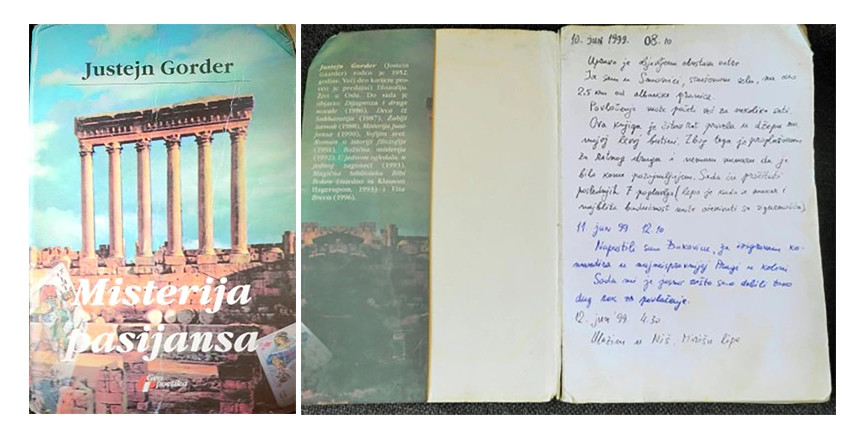 Justejn Gorder
Misterija
pasijansa
Geo
poetika
Justejn Gorder (Jostein
Gaarder) rođen je 1952.
godine. Veći deo karijere pro-
veo je predajući filozofiju
Živi u Oslu. Do sada je
objavio: Dijagnoza i druge
novele (1986), Deca iz
Sukhavatija (1987), Žablji
zamak (1988), Misterija pasi-
jansa (1990), Sofijin svet.
Roman o istoriji filozofije
(1991), Božićna misterija
(1992), U jednom ogledalu, u
jednoj zagonetci (1993),
Magična biblioteka Bibi
Boken (zajedno sa Klausom
Hagerupom, 1993) i Vita
Brevis (1996).
10. jun 1999. 08.10
Upravo je objavljena obustava vatre
Ja sam u selu, na oko
2.5 km od albanske granice.
Povlačenje može početi već za nekoliko sati.
Ova knjiga je čitav rat provela u džepu na
mojoj levoj butini. Zbog toga je proglašavam
za ratnog druga i nemam nameru da je
bilo kome pozajmljujem. Sada ću pročitati
poslednjih 7 poglavlja (lepo je kada se makar i
najbliža budućnost može očekivati sa izvesnošću).
11. jun 99 12.10
Napustili smo Đakovicu, ja
u najneispravnijoj u koloni
Sada mi je jasno zašto smo dobili tako
dug rok za povlačenje.
12. jun 99. 4.30
Ulazim u Niš. Miriše lipa